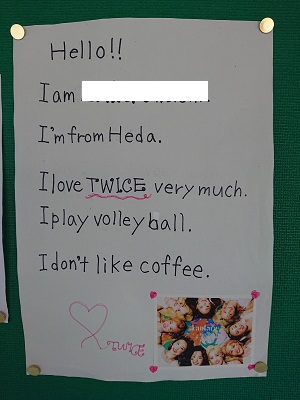 Hello!!
I am
I'm from Heda.
I love TWICE very much.
I play volleyball.
I don't like coffee.
TWICE